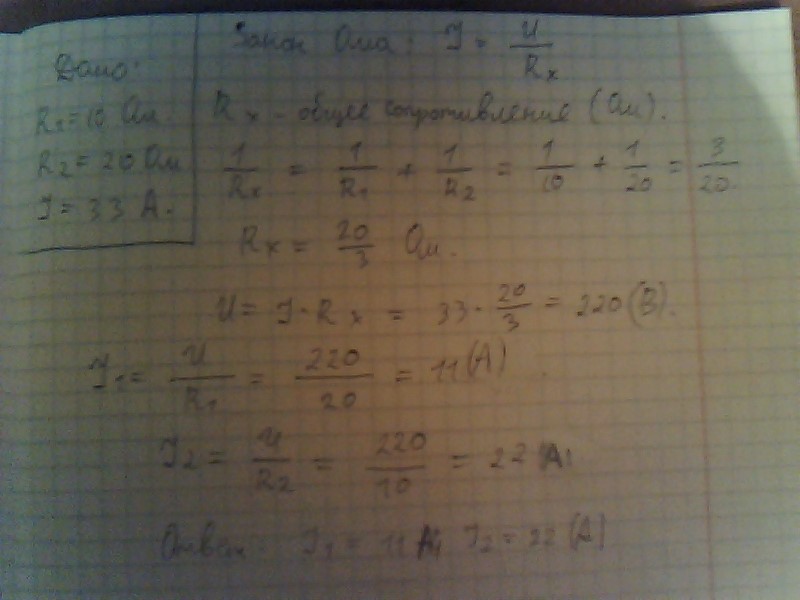 Дано:
R1=10 Ом.
R2=20 Ом
I=33 А.
Закон Ома: I = U/Rx
Rx - общее сопротивление (Ом).
1/Rx = 1/R1 + 1/R2 = 1/10 + 1/20 = 3/20.
Rx = 20/3 Ом.
U = I·Rx = 33·20/3 = 220(В).
I1 = U/R1 = 220/20 = 11(А)
I2 = U/R2 = 220/10 = 22(А)
Ответ: I1 = 11 А, I2 = 22 (А)